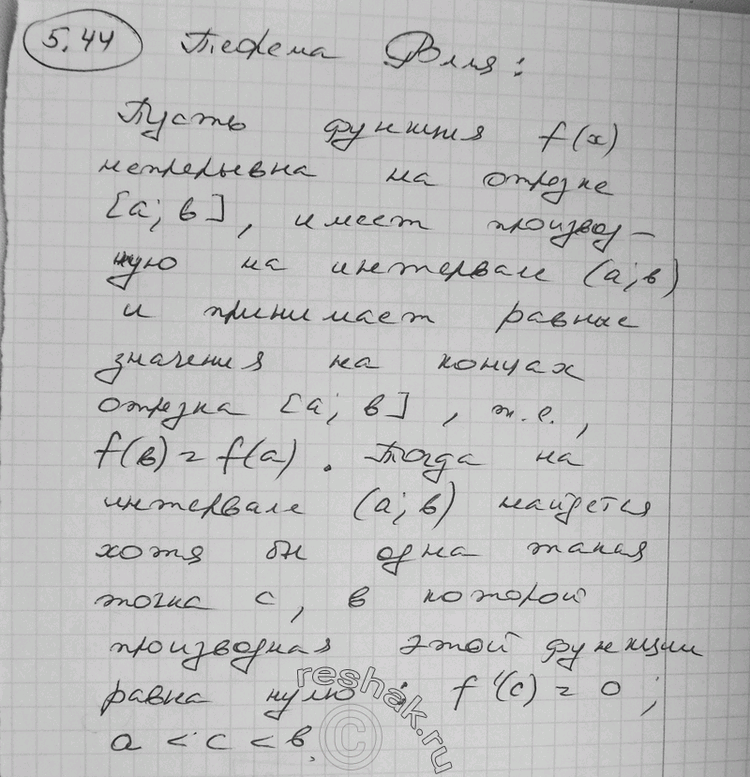 5.44 Теорема Ролля:
Пусть функция f(x)
непрерывна на отрезке
[a; в], имеет производ-
ную на интервале (a; в)
и принимает равные
значения на концах
отрезка [a; в], т.е.,
f(в) = f(a). Тогда на
интервале (a; в) найдется
хотя бы одна такая
точка с, в которой
производная этой функции
равна нулю: f'(c) = 0;
a < c < в.
reshak.ru
©